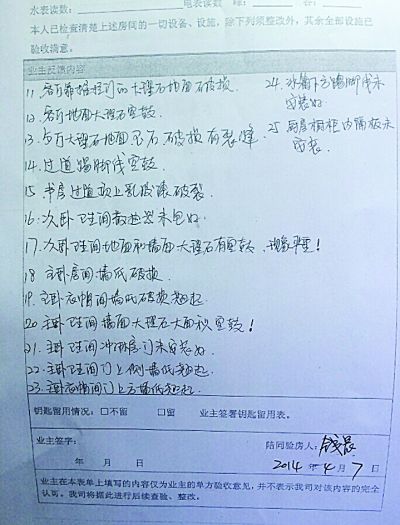 水表读数：
电表读数 峰： 谷：
本人已检查清楚上述房间的一切设备、设施，除下列须整改外，其余全部设施已
验收满意。
业主反馈内容
11. 客厅靠推拉门大理石地面破损
12. 客厅地面大理石空鼓.
13. 大理石地面 破损有裂缝
14. 过道踢脚线空鼓
15. 书房过道顶上乳胶漆破裂.
16. 次卧卫生间散热器未包好
17. 次卧卫生间地面和墙面大理石有空鼓、 严重！
18 主卧房间墙纸破损.
19. 主卧衣帽间墙纸破损翘起.
20. 主卧卫生间墙面大理石大面积空鼓！
21. 主卧卫生间冲淋房门未安装好
22. 主卧卫生间门上侧墙纸翘起
23. 主卧衣帽间门上方墙纸翘起.
24. 冰箱下方踢脚线未
安装好
25. 厨房橱柜内隔板未
安装.
钥匙留用情况：□不留 □留 业主签署钥匙留用表。
业主签字：
陪同验房人：
2014 年 4 月 7 日
业主在本表单上填写的内容仅为业主的单方验收意见，并不表示我司对该内容的完全
认可。我司将据此进行后续查验、整改。